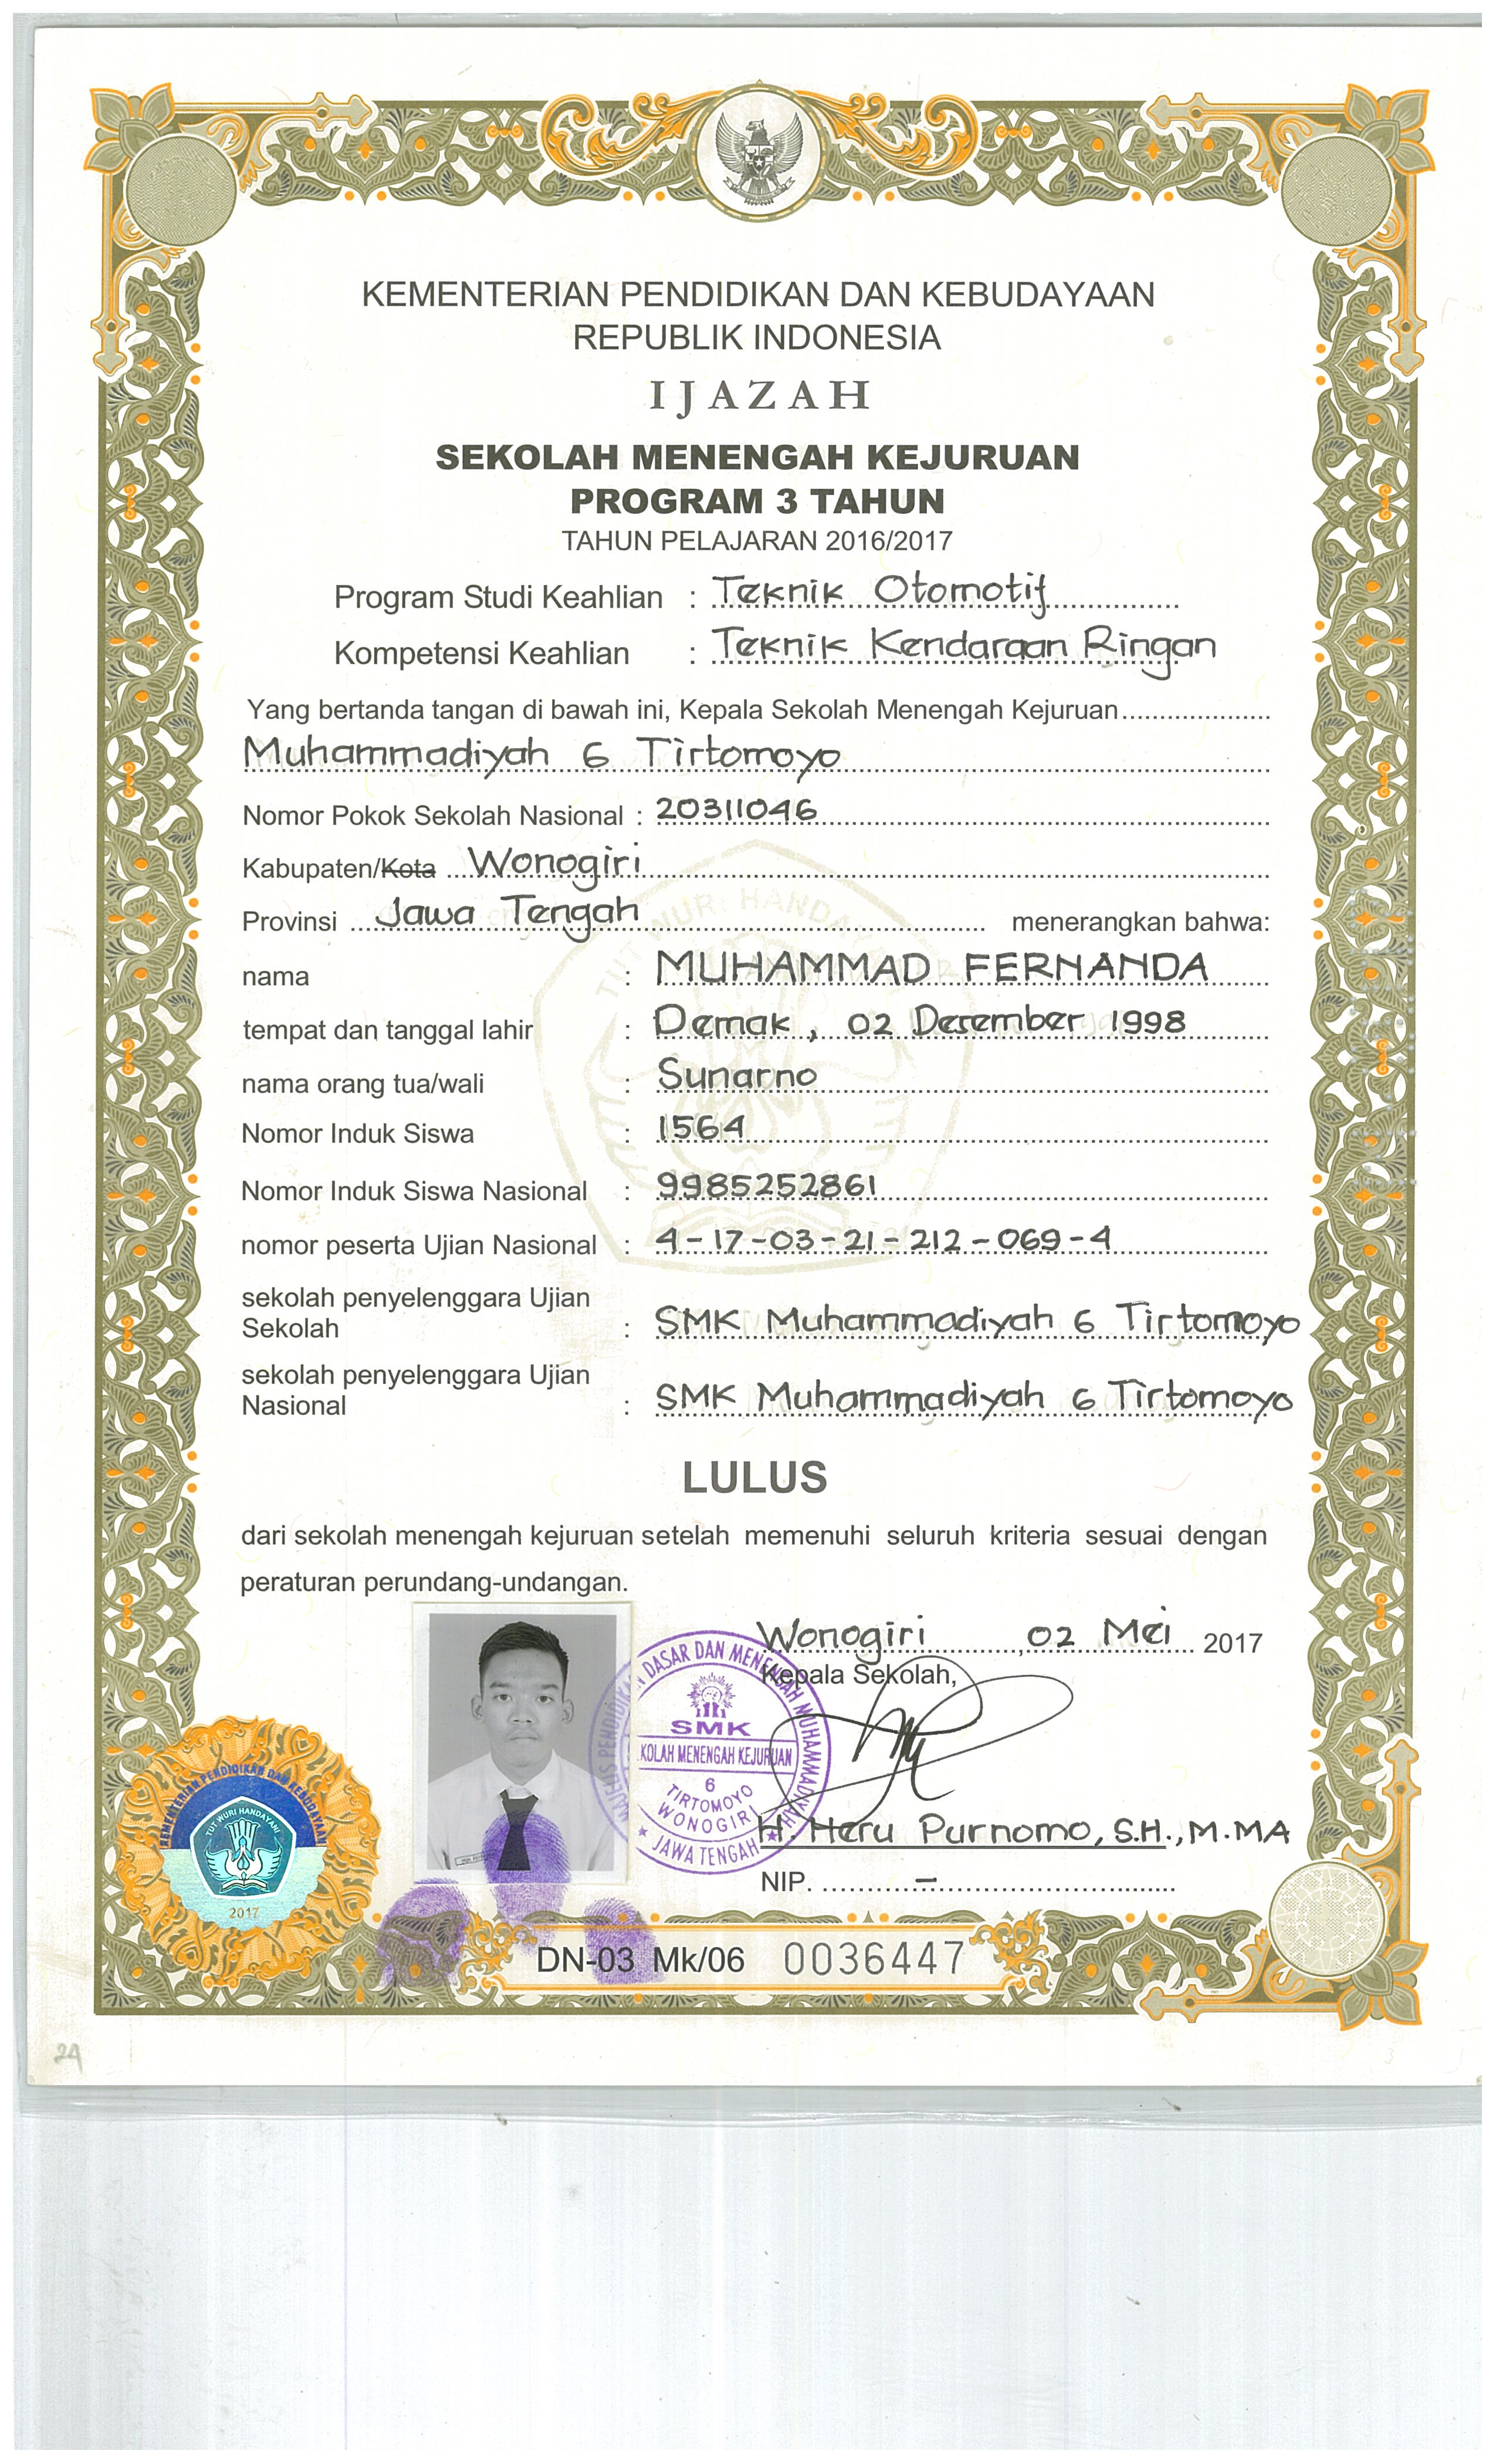 KEMENTERIAN PENDIDIKAN DAN KEBUDAYAAN
REPUBLIK INDONESIA
IJAZAH
SEKOLAH MENENGAH KEJURUAN
PROGRAM 3 TAHUN
TAHUN PELAJARAN 2016/2017
Program Studi Keahlian : Teknik Otomotif
Kompetensi Keahlian : Teknik Kendaraan Ringan
Yang bertanda tangan di bawah ini, Kepala Sekolah Menengah Kejuruan
Muhammadiyah 6 Tirtomoyo
Nomor Pokok Sekolah Nasional : 20311046
Kabupaten/Kota Wonogiri
Provinsi Jawa Tengah menerangkan bahwa:
nama : MUHAMMAD FERNANDA
tempat dan tanggal lahir : Demak, 02 Desember 1998
nama orang tua/wali : Sunarno
Nomor Induk Siswa : 1564
Nomor Induk Siswa Nasional : 9985252861
nomor peserta Ujian Nasional : 4-17-03-21-212-069-4
sekolah penyelenggara Ujian
Sekolah : SMK Muhammadiyah 6 Tirtomoyo
sekolah penyelenggara Ujian
Nasional : SMK Muhammadiyah 6 Tirtomoyo
LULUS
dari sekolah menengah kejuruan setelah memenuhi seluruh kriteria sesuai dengan
peraturan perundang-undangan.
Wonogiri, 02 Mei 2017
Kepala Sekolah,
DASAR DAN MENENGAH MUHAMMADIYAH
SMK
KOLAH MENENGAH KEJURUAN
6
TIRTOMOYO
WONOGIRI
JAWA TENGAH
H. Heru Purnomo, S.H., M.MA
NIP. -
KEMENTERIAN PENDIDIKAN DAN KEBUDAYAAN
TUT WURI HANDAYANI
2017
DN-03 Mk/06 0036447
24